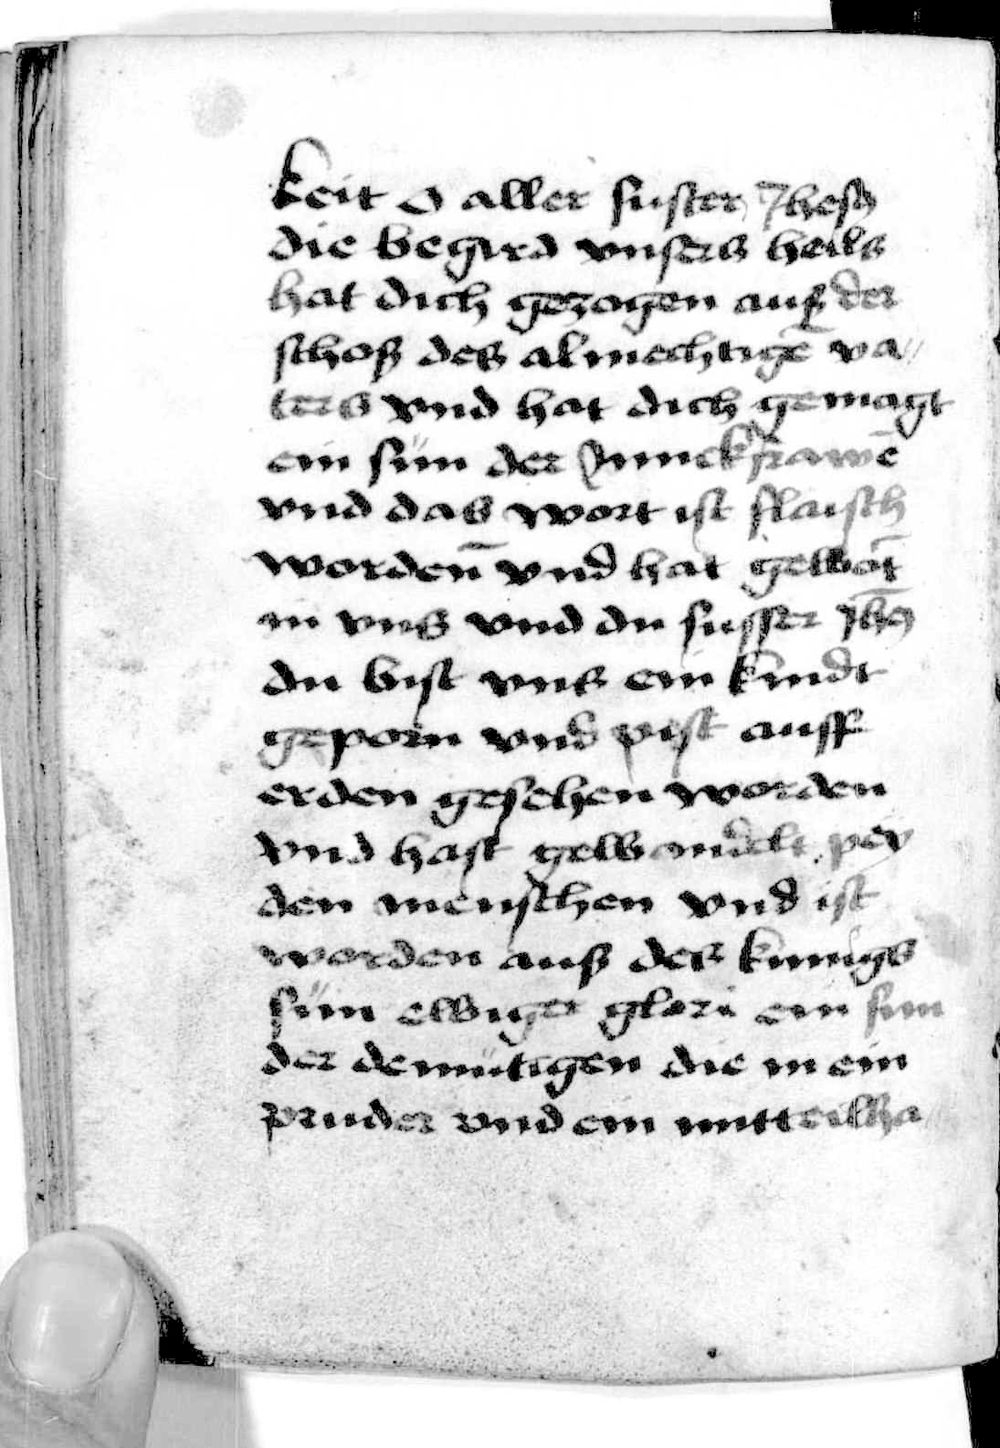 keit O aller suster Jhesu
die begird vnsers heils
hat dich gezogen auß der
schoß des almechtigē va//
ters vnd hat dich gemagt
ein sün der Junckfrawē
vnd das wort ist flaisch
wordeñ vnd hat gewōt
in vns vnd du susser Jhs̄
du bist vns ein kindt
geporn vnd pist auff
erden gesehen worden
vnd hast gewandelt pey
den menschen vnd ist
worden auß des kunigs
sün ewiger glori ein sun
der demütigen die mein
pruder vnd ein mitteilha